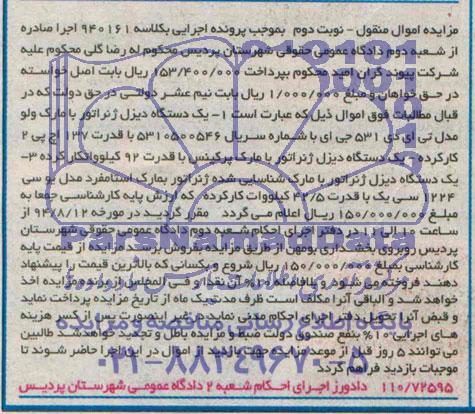 مزایده اموال منقول - نوبت دوم بموجب پرونده اجرایی بکلاسه ۹۴۰۱۶۱ اجرا صادره
از شعبه دوم دادگاه عمومی حقوقی شهرستان پردیس محکوم له رضا گلی محکوم علیه
شرکت پیوند گران امید محکوم بپرداخت ۱۵۳/۴۰۰/۰۰۰ ریال بابت اصل خواسته
در حق خواهان و مبلغ ۱/۰۰۰/۰۰۰ ریال بابت نیم عشر دولتی در حق دولت که در
قبال مطالبات فوق اموال ذیل که عبارت است ۱- یک دستگاه دیزل ژنراتور با مارک ولو
مدل تی ای دی ۵۳۱ جی ای با شماره سریال ۵۳۱۰۵۰۰۵۴۶ با قدرت ۱۳۷ اچ پی ۲
کارکرده - یک دستگاه دیزل ژنراتور با مارک پرکینس با قدرت ۹۲ کیلووات کارکرده ۳-
یک دستگاه دیزل ژنراتور با مارک شناسایی شده ژنراتور بمارک استامفرد مدل یو سی
۱۲۲۴ سی یک با قدرت ۴۲/۵ کیلووات کارکرده که ارزش پایه کارشناسی جمعا به
مبلغ ۱۵۰/۰۰۰/۰۰۰ ریال اعلام می گردد مقرر گردید در مورخه ۹۴/۸/۱۲ از
ساعت ۱۰ الی ۱۱ در دفتر اجرای احکام شعبه دوم دادگاه عمومی حقوقی شهرستان
پردیس روبروی بخشداری بومهن از طریق مزایده بفروش می رسد مزایده از قیمت پایه
کارشناسی بمبلغ ۱۵۰/۰۰۰/۰۰۰ ریال شروع و بکسانی که بالاترین قیمت را پیشنهاد
دهند فروخته می شود و بلافاصله ۱۰٪ آن نقدا و فی المجلس از برنده مزایده اخذ
خواهد شد و الباقی آنرا مکلف است ظرف مدت یک ماه از تاریخ مزایده پرداخت نماید
و قبض آنرا تحویل دفتر اجرای احکام مدنی نماید در غیر اینصورت پس از کسر هزینه
های اجرایی ۱۰٪ بنفع صندوق دولت ضبط و مزایده باطل و تجدید خواهد شد طالبین
می توانند ۵ روز قبل از موعد مزایده جهت بازدید از اموال در این اجرا حاضر شوند تا
موجبات بازدید فراهم گردد
۱۱۰/۷۲۵۹۵ دادورز اجرای احکام شعبه ۲ دادگاه عمومی شهرستان پردیس
پایگاه اطلاع رسانی مناقصه و مزایده
۰۲۱-۸۸۳۴۹۶۷۰-۵